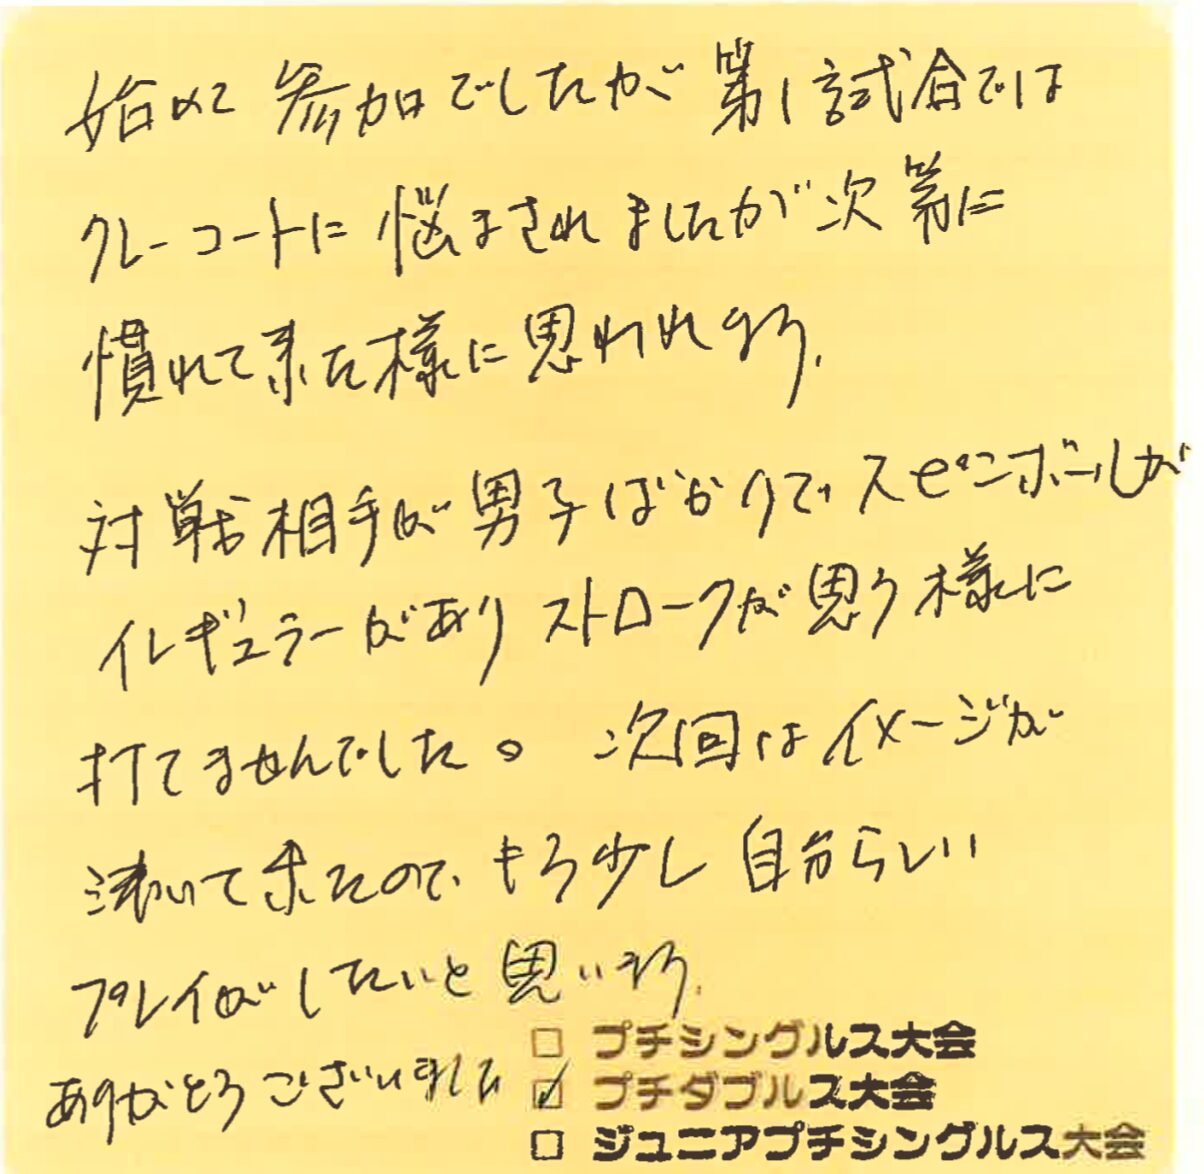 始めて参加でしたが第1試合では
クレーコートに悩まされましたが次第に
慣れて来た様に思われます.
対戦相手が男子ばかりで、スピンボールが
イレギュラーがありストロークが思う様に
打てませんでした。次回はイメージが
沸いて来たので、もう少し自分らしい
プレイがしたいと思います.
ありがとうございました
□ プチシングルス大会
☑ プチダブルス大会
□ ジュニアプチシングルス大会